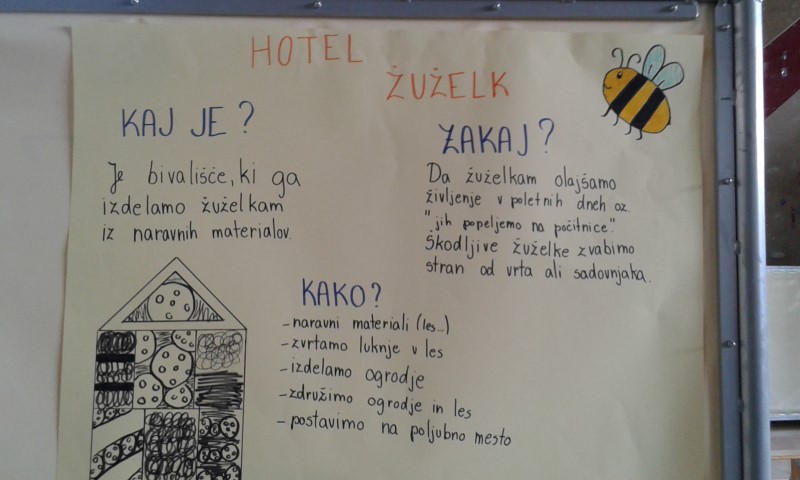 HOTEL
ŽUŽELK
KAJ JE?
Je bivališče, ki ga
izdelamo žuželkam
iz naravnih materialov.
ZAKAJ?
Da žuželkam olajšamo
življenje v poletnih dneh oz.
"jih popeljemo na počitnice".
Škodljive žuželke zvabimo
stran od vrta ali sadovnjaka.
KAKO?
- naravni materiali (les...)
- zvrtamo luknje v les
- izdelamo ogrodje
- združimo ogrodje in les
- postavimo na poljubno mesto